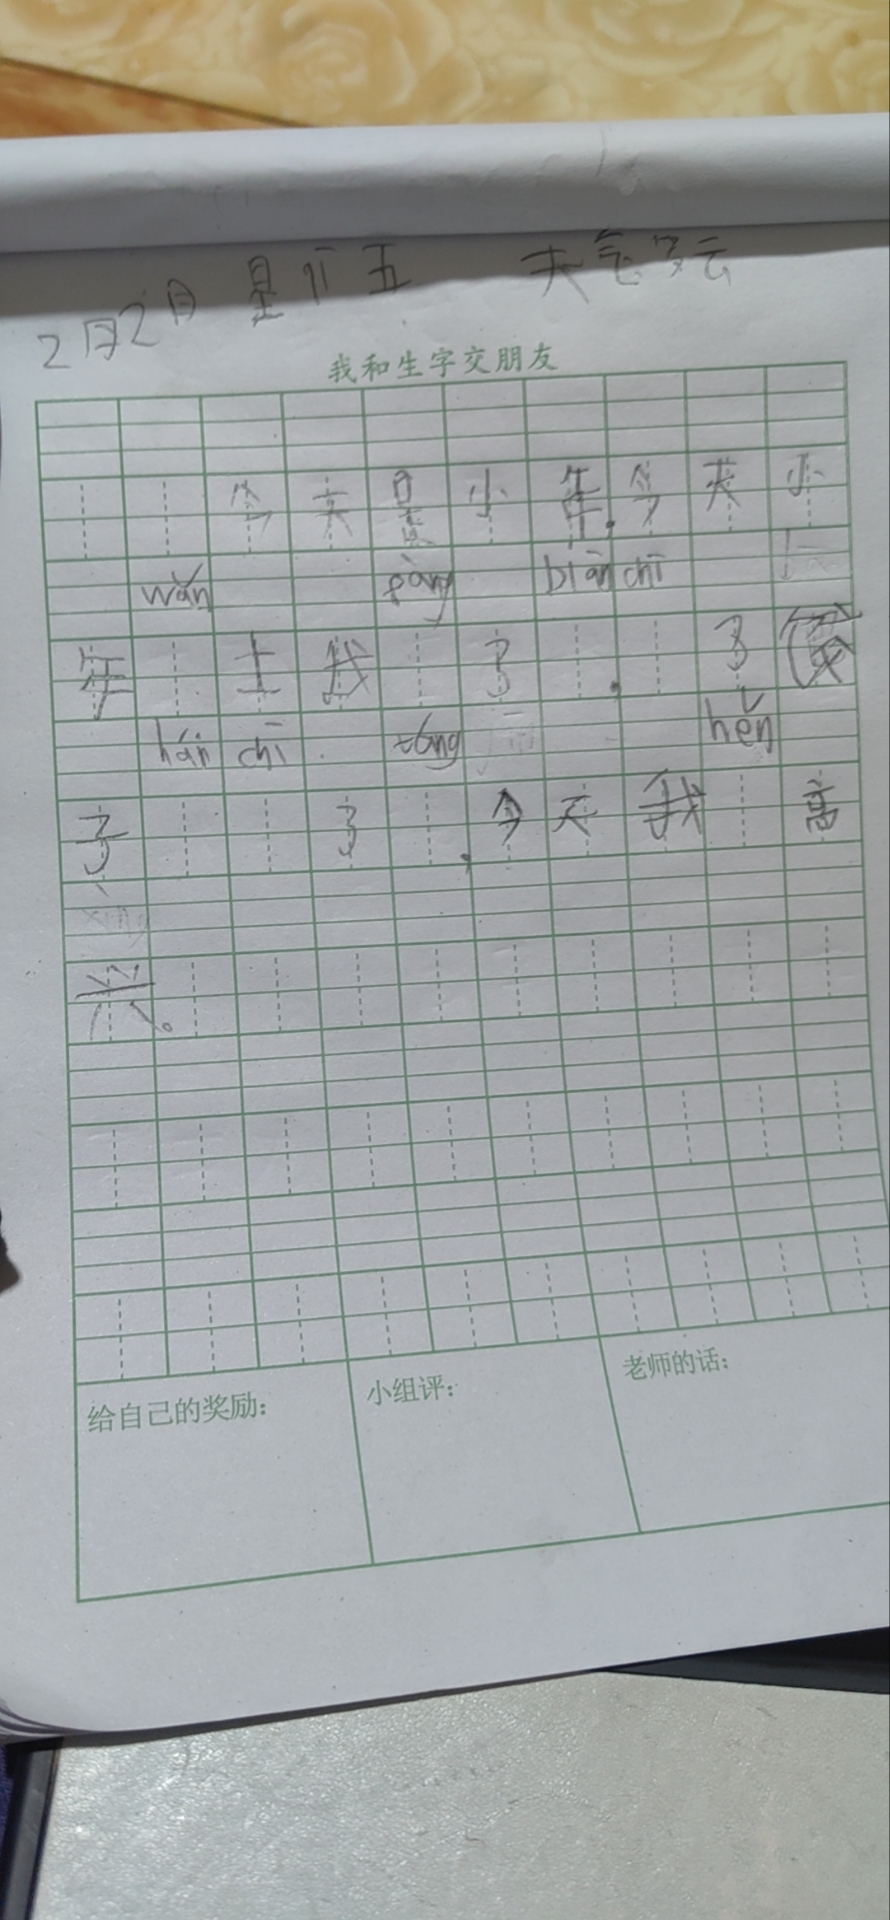 2月2日 星 五 天气多云
我和生字交朋友
今天是小年.今天小
wǎn fàng biān chī
年 上我 了 . 了
hán chī táng hěn
子 了 .今天我 高
xìng
兴。
给自己的奖励: 小组评: 老师的话: